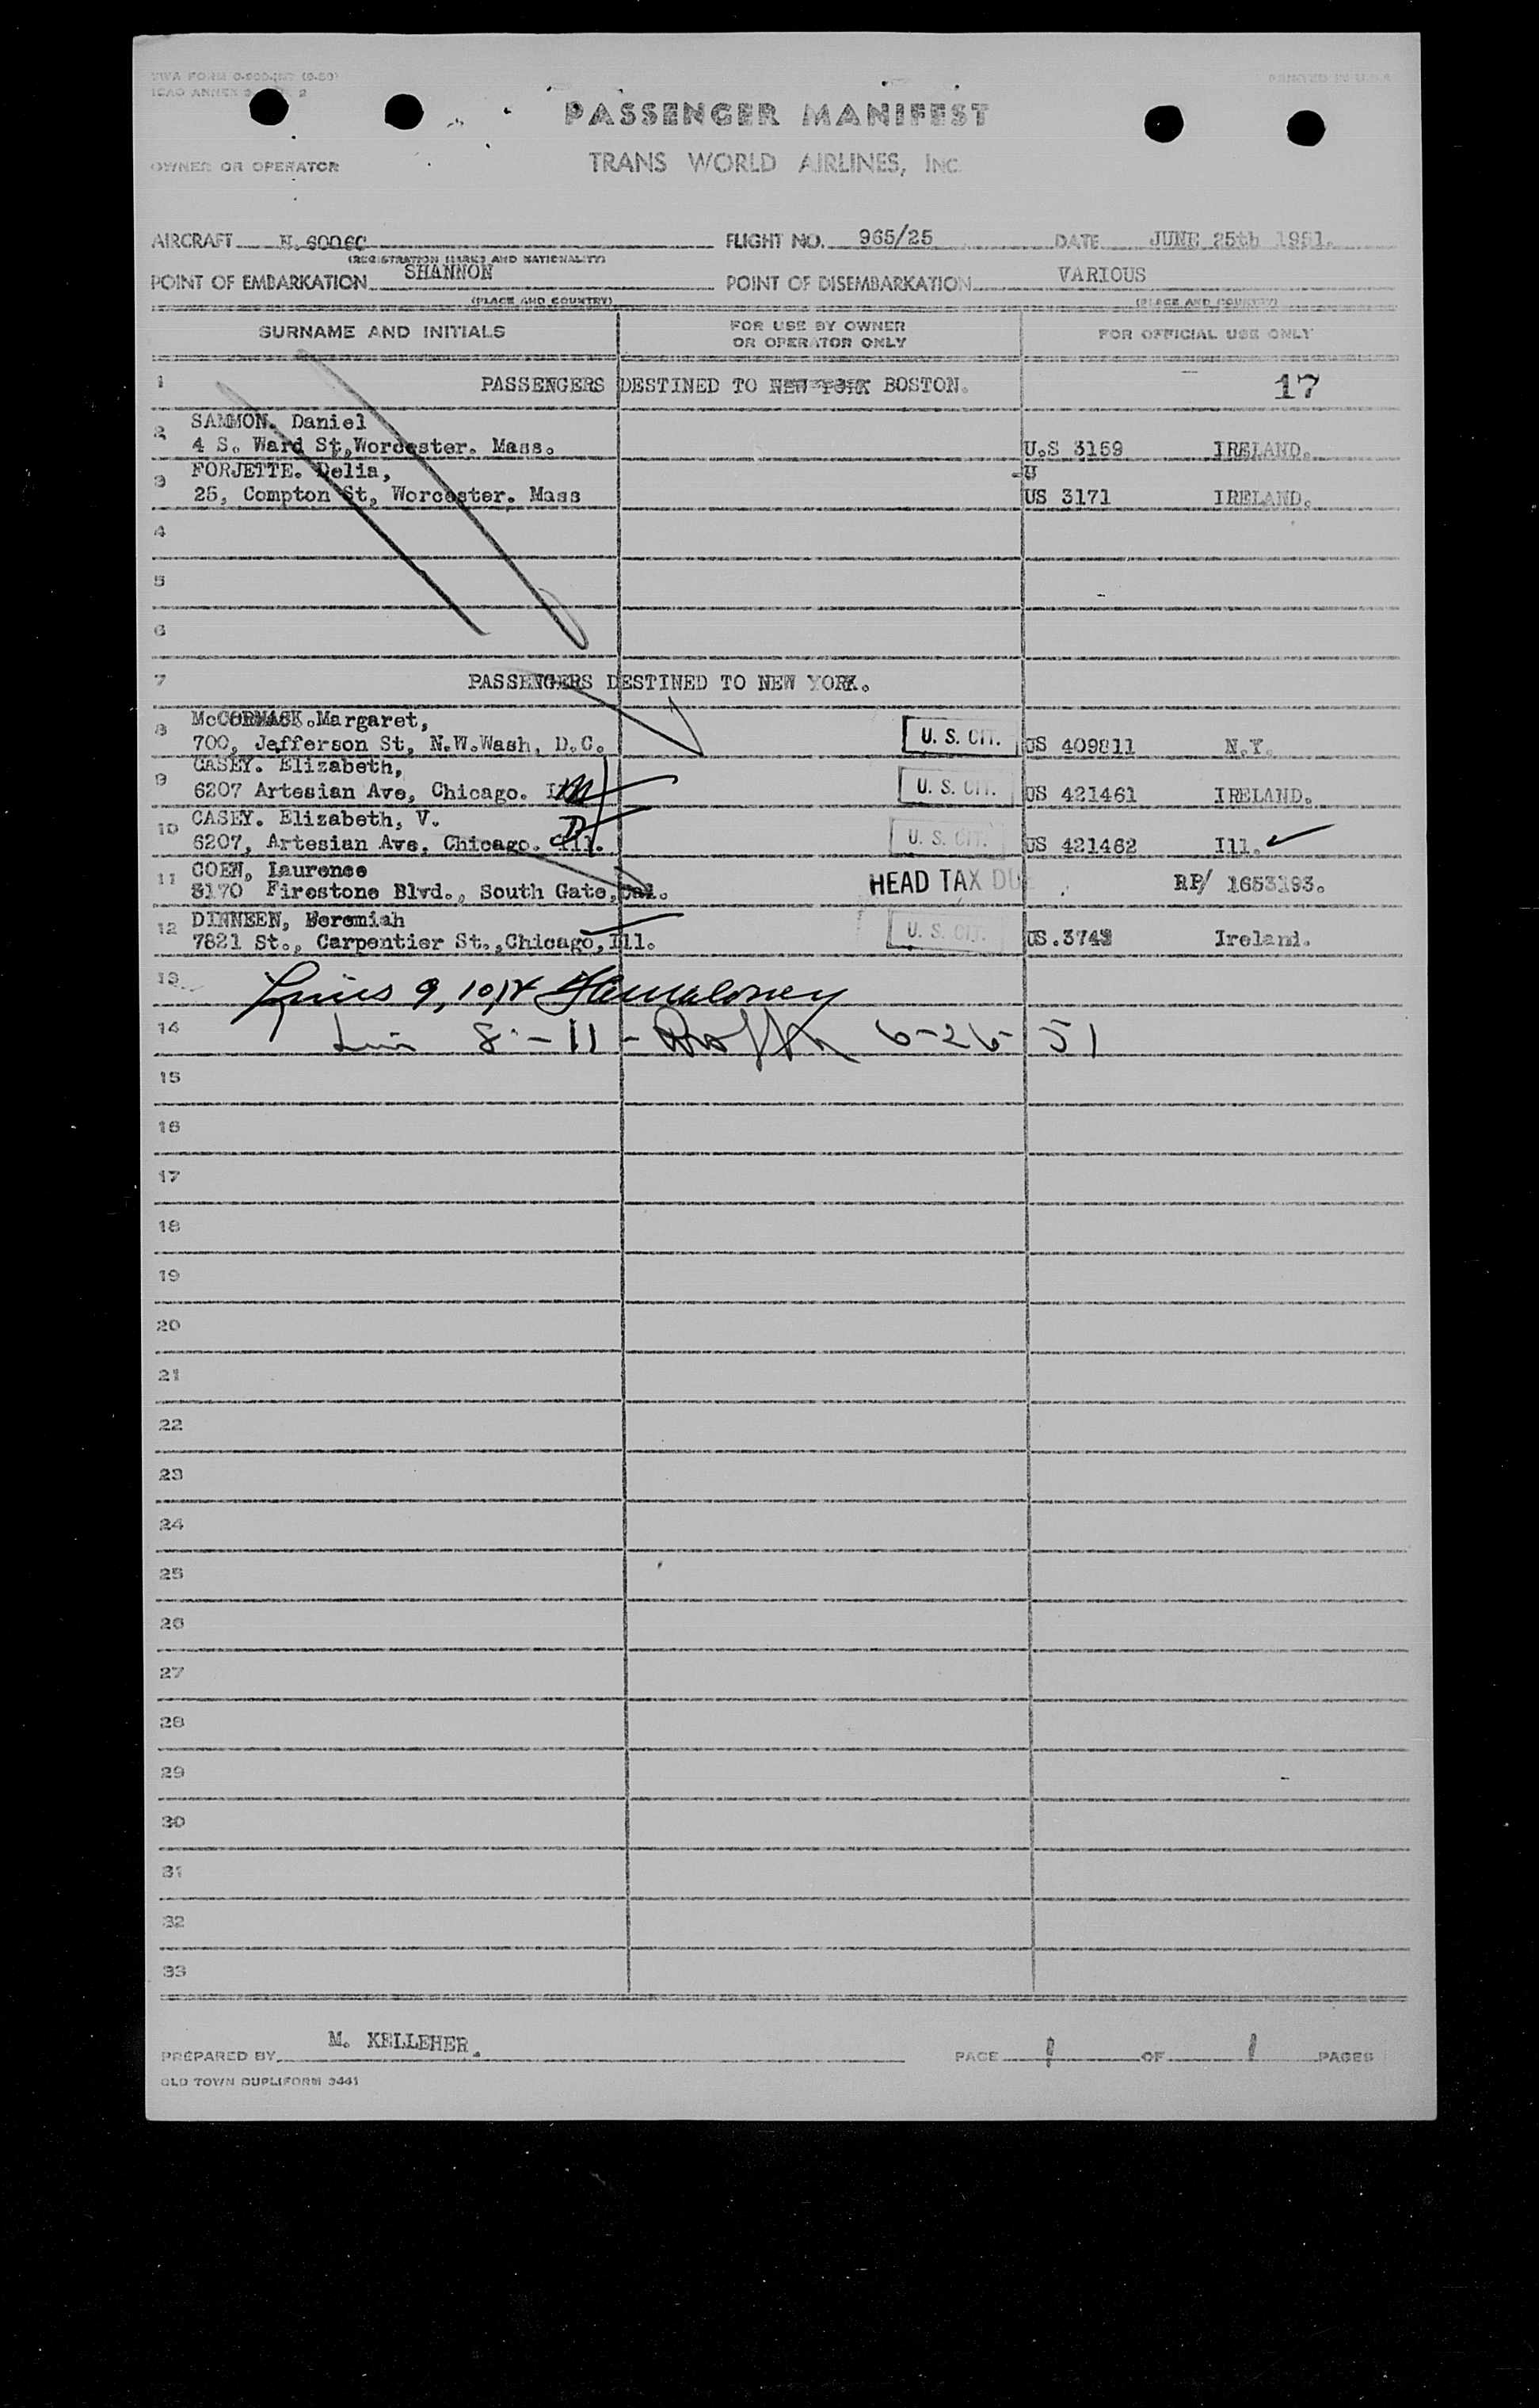 TWA FORM
ICAO ANNEX
PRINTED IN U.S.A
PASSENGER MANIFEST
OWNER OR OPERATOR
TRANS WORLD AIRLINES, INC.
AIRCRAFT N. 6006C FLIGHT NO. 965/25 DATE JUNE 25th 1951.
(REGISTRATION MARKS AND NATIONALITY)
POINT OF EMBARKATION SHANNON POINT OF DISEMBARKATION VARIOUS
(PLACE AND COUNTRY) (PLACE AND COUNTRY)
SURNAME AND INITIALS FOR USE BY OWNER OR OPERATOR ONLY FOR OFFICIAL USE ONLY
1 PASSENGERS DESTINED TO NEW YORK BOSTON. 17
2 SAMMON. Daniel
4 S. Ward St, Worcester. Mass. U.S 3159 IRELAND.
3 FORJETTE. Delia, U
25, Compton St, Worcester. Mass US 3171 IRELAND.
4
5
6
7 PASSENGERS DESTINED TO NEW YORK.
8 McCORMACK. Margaret,
700, Jefferson St, N.W. Wash, D.C. U. S. CIT. US 409811 N.Y.
9 CASEY. Elizabeth,
6207 Artesian Ave, Chicago. U. S. CIT. US 421461 IRELAND.
10 CASEY. Elizabeth, V.
6207, Artesian Ave, Chicago. Ill. U. S. CIT. US 421462 Ill.
11 COEN, Laurence
3170 Firestone Blvd., South Gate, Cal. HEAD TAX DU RP/ 1653193.
12 DINNEEN, Jeremiah
7821 St., Carpentier St., Chicago, Ill. U. S. CIT. US. 3743 Ireland.
13 Lines 9, 10, 12
14 8 - 11 - 6-26-51
15
16
17
18
19
20
21
22
23
24
25
26
27
28
29
30
31
32
33
PREPARED BY M. KELLEHER. PAGE 1 OF 1 PAGES
OLD TOWN DUPLIFORM 3441